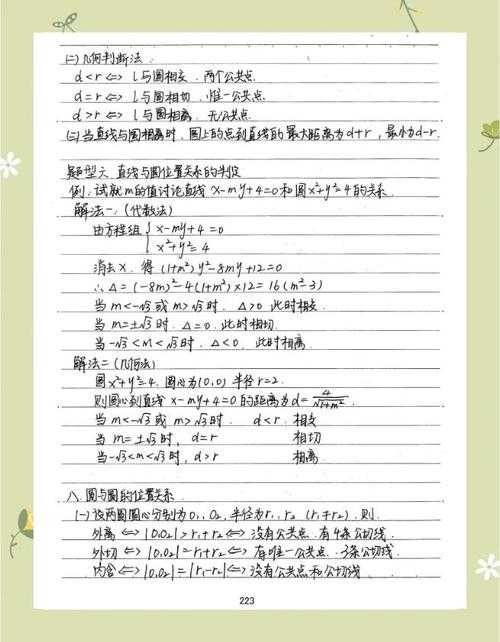 (二)几何判断法:
d<r⇔l与圆相交.两个公共点
d=r⇔l与圆相切.惟一公共点
d>r⇔l与圆相离.无公共点
(三)当直线与圆相离时.圆上的点到直线的最大距离为d+r,最小为d-r.
题型六 直线与圆位置关系的判定
例:试就m的值讨论直线 x-my+4=0和圆x²+y²=4的关系.
解法一:(代数法)
由方程组{x-my+4=0
x²+y²=4
消去x.得(1+m²)y²-8my+12=0
∴Δ=(-8m)²-4(1+m²)×12=16(m²-3)
当m<-√3或m>√3时.Δ>0 此时相交.
当m=±√3时.Δ=0.此时相切.
当-√3<m<√3时.Δ<0.此时相离.
解法二(几何法)
圆x²+y²=4.圆心为(0,0)半径r=2.
则圆心到直线 x-my+4=0的距离为d=4/√(1+m²)
当m<-√3或m>√3时. d<r.相交
当m=±√3时,d=r 相切
当-√3<m<√3时,d>r 相离.
八.圆与圆的位置关系.
(一)设两圆圆心分别为O₁、O₂,半径为r₁、r₂(r₁≠r₂).则
外离⇔|O₁O₂|>r₁+r₂⇔没有公共点.有4条公切线.
外切⇔|O₁O₂|=r₁+r₂⇔有唯一公共点.3条公切线.
内含⇔|O₁O₂|=|r₁-r₂|⇔没有公共点和公切线.
223